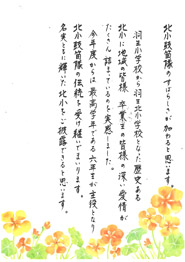 北小鼓笛隊のすばらしさが加わると思います。
羽生小学校から羽生北小学校となった歴史ある
北小に地域の皆様、卒業生の皆様の深い愛情が
たくさん詰まっているのを実感しました。
今年度からは最高学年である六年生が主役となり
北小鼓笛隊の伝統を受け継いでまいります。
名実ともに輝いた北小をご披露できると思います。